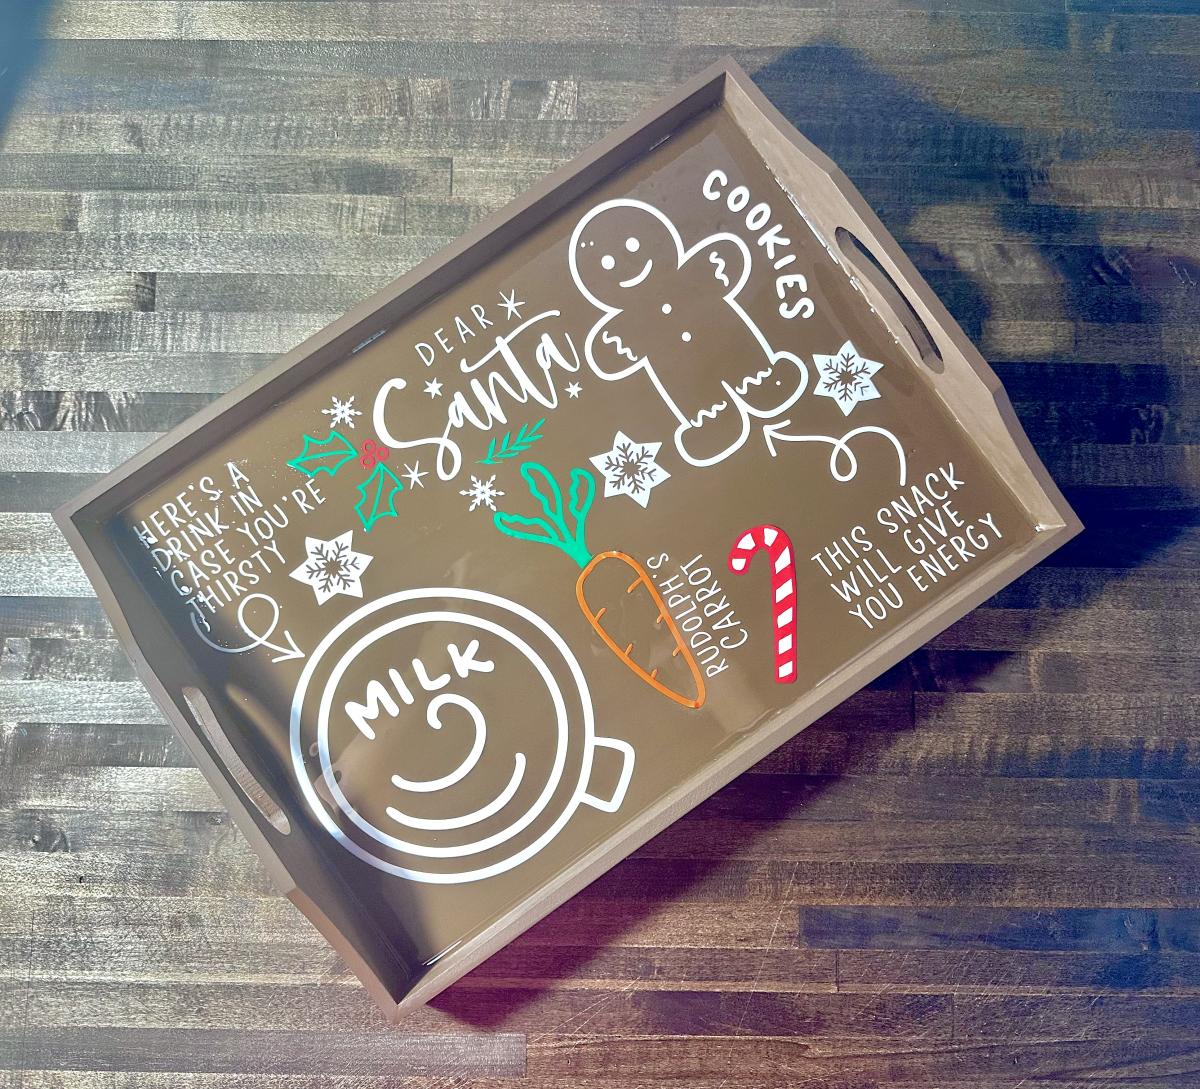 DEAR
Santa
COOKIES
HERE'S A
DRINK IN
CASE YOU'RE
THIRSTY
MILK
RUDOLPH'S
CARROT
THIS SNACK
WILL GIVE
YOU ENERGY